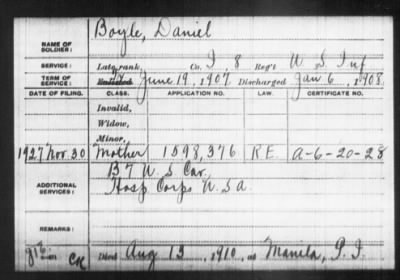 Boyle, Daniel
NAME OF SOLDIER:
SERVICE: Late rank, Co. I, 8 Reg't U S Inf
TERM OF SERVICE: Enlisted June 19, 1907 Discharged Jan 6, 1908
DATE OF FILING. CLASS. APPLICATION NO. LAW. CERTIFICATE NO.
Invalid,
Widow,
Minor,
1927 Nov. 30 Mother 1598,376 R E. A-6-20-28
ADDITIONAL SERVICES: B 7 U. S. Cav.
Hosp Corps U.S.A.
REMARKS:
Died Aug 13, 1910, at Manila, P. I.